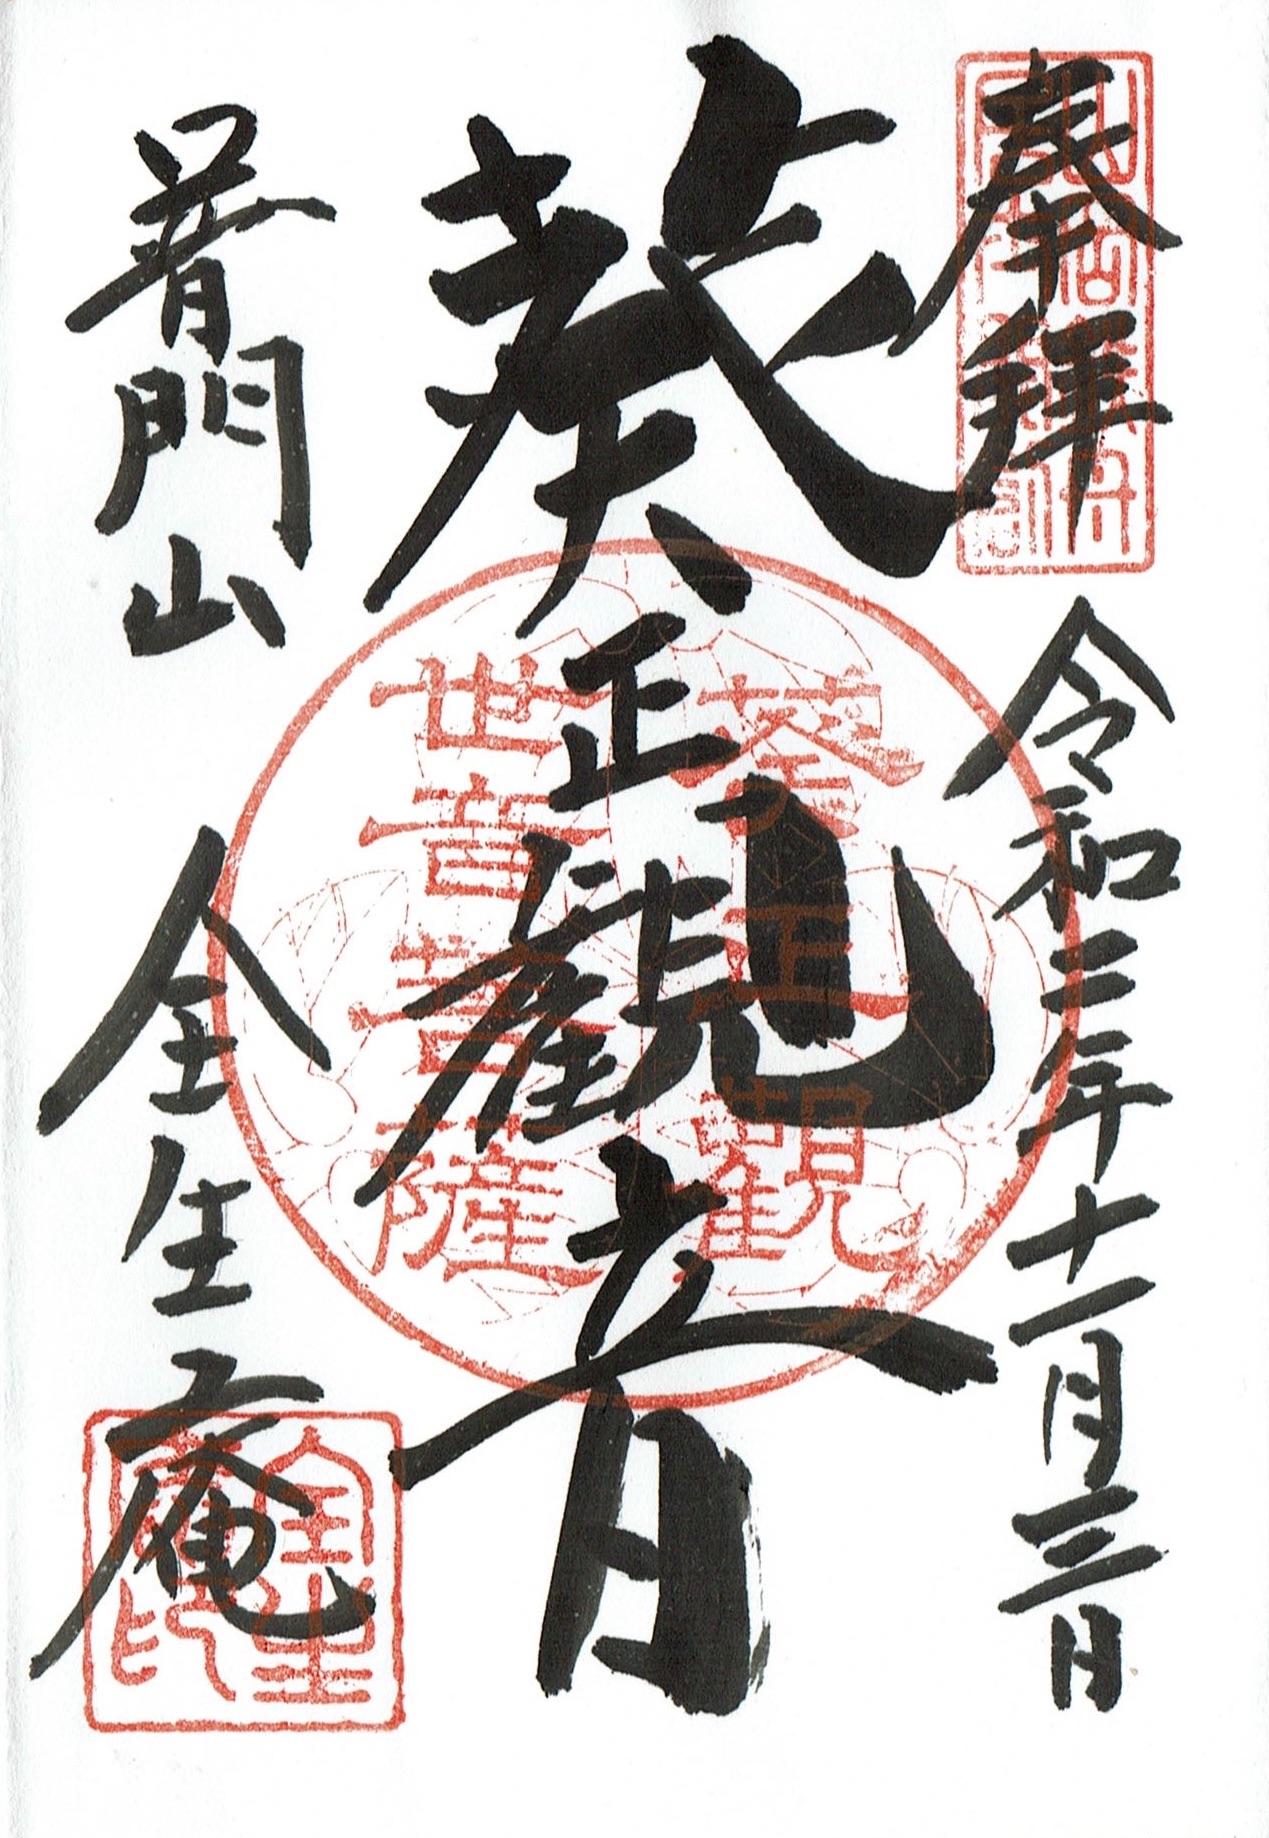 奉拝 令和三年十一月三日
葵正観音
普門山 全生庵
葵正觀
世音菩薩
全生
庵印